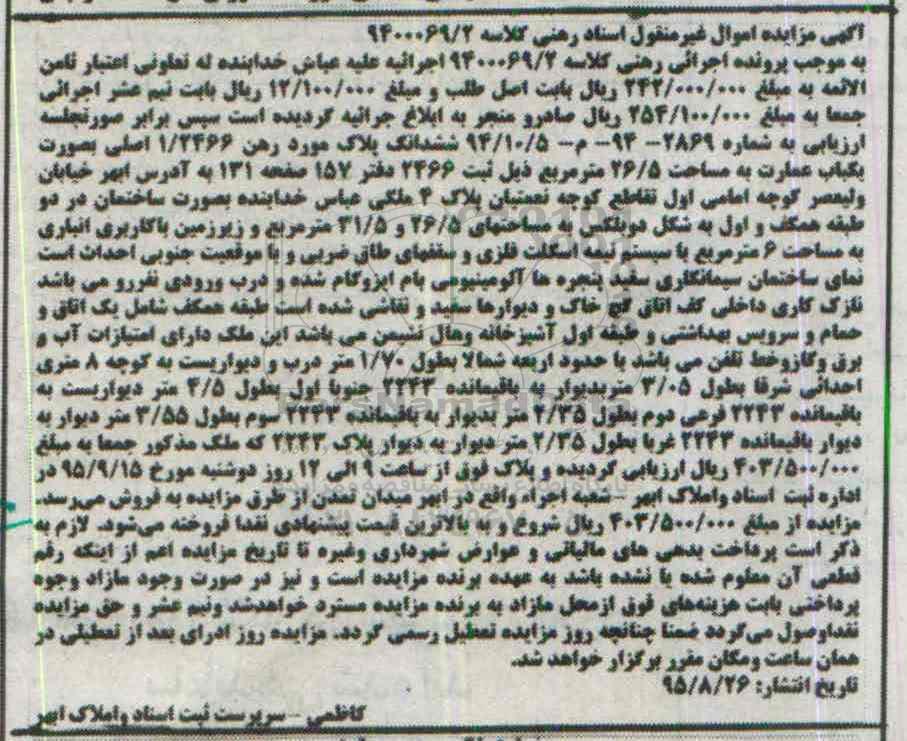 آگهی مزایده اموال غیرمنقول اسناد رهنی کلاسه ۹۴۰۰۰۶۹/۲
به موجب پرونده اجرائی رهنی کلاسه ۹۴۰۰۰۶۹/۲ اجرائیه علیه عباس خدابنده له تعاونی اعتبار ثامن
الائمه به مبلغ ۲۴۲/۰۰۰/۰۰۰ ریال بابت اصل طلب و مبلغ ۱۲/۱۰۰/۰۰۰ ریال بابت نیم عشر اجرائی
جمعا به مبلغ ۲۵۴/۱۰۰/۰۰۰ ریال صادرو منجر به ابلاغ جرائیه گردیده است سپس برابر صورتجلسه
ارزیابی به شماره ۲۸۶۹- ۹۴- م- ۹۴/۱۰/۵ ششدانگ پلاک مورد رهن ۱/۲۴۶۶ اصلی بصورت
یکباب عمارت به مساحت ۲۶/۵ مترمربع ذیل ثبت ۲۴۶۶ دفتر ۱۵۷ صفحه ۱۳۱ به آدرس ابهر خیابان
ولیعصر کوچه امامی اول تقاطع کوچه نعمتیان پلاک ۴ ملکی عباس خدابنده بصورت ساختمان در دو
طبقه همکف و اول به شکل دوبلکس به مساحتهای ۲۶/۵ و ۳۱/۵ مترمربع و زیرزمین باکاربری انباری
به مساحت ۶ مترمربع با سیستم نیمه اسکلت فلزی و سقفهای طاق ضربی و با موقعیت جنوبی احداث است
نمای ساختمان سیمانکاری سفید پنجره ها آلومینیومی بام ایزوگام شده و درب ورودی نفررو می باشد
نازک کاری داخلی کف اتاق گچ خاک و دیوارها سفید و نقاشی شده است طبقه همکف شامل یک اتاق و
حمام و سرویس بهداشتی و طبقه اول آشپزخانه وهال نشیمن می باشد این ملک دارای امتیازات آب و
برق وگازوخط تلفن می باشد با حدود اربعه شمالا بطول ۱/۷۰ متر درب و دیواریست به کوچه ۸ متری
احداثی شرقا بطول ۳/۰۵ متربدیوار به باقیمانده ۲۲۴۳ جنوبا اول بطول ۴/۵ متر دیواریست به
باقیمانده ۲۲۴۳ فرعی دوم بطول ۲/۳۵ متر بدیوار به باقیمانده ۲۲۴۳ سوم بطول ۳/۵۵ متر دیوار به
دیوار باقیمانده ۲۲۴۳ غربا بطول ۲/۳۵ متر دیوار به دیوار پلاک ۲۲۴۳ که ملک مذکور جمعا به مبلغ
۴۰۳/۵۰۰/۰۰۰ ریال ارزیابی گردیده و پلاک فوق از ساعت ۹ الی ۱۲ روز دوشنبه مورخ ۹۵/۹/۱۵ در
اداره ثبت اسناد واملاک ابهر -شعبه اجراء واقع در ابهر میدان تمدن از طرق مزایده به فروش می‌رسد.
مزایده از مبلغ ۴۰۳/۵۰۰/۰۰۰ ریال شروع و به بالاترین قیمت پیشنهادی نقدا فروخته می‌شود. لازم به
ذکر است پرداخت بدهی های مالیاتی و عوارض شهرداری وغیره تا تاریخ مزایده اعم از اینکه رقم
قطعی آن معلوم شده یا نشده باشد به عهده برنده مزایده است و نیز در صورت وجود مازاد وجوه
پرداختی بابت هزینه‌های فوق ازمحل مازاد به برنده مزایده مسترد خواهدشد ونیم عشر و حق مزایده
نقداوصول می‌گردد ضمنا چنانچه روز مزایده تعطیل رسمی گردد. مزایده روز ادرای بعد از تعطیلی در
همان ساعت ومکان مقرر برگزار خواهد شد.
تاریخ انتشار: ۹۵/۸/۲۶
کاظمی - سرپرست ثبت اسناد واملاک ابهر